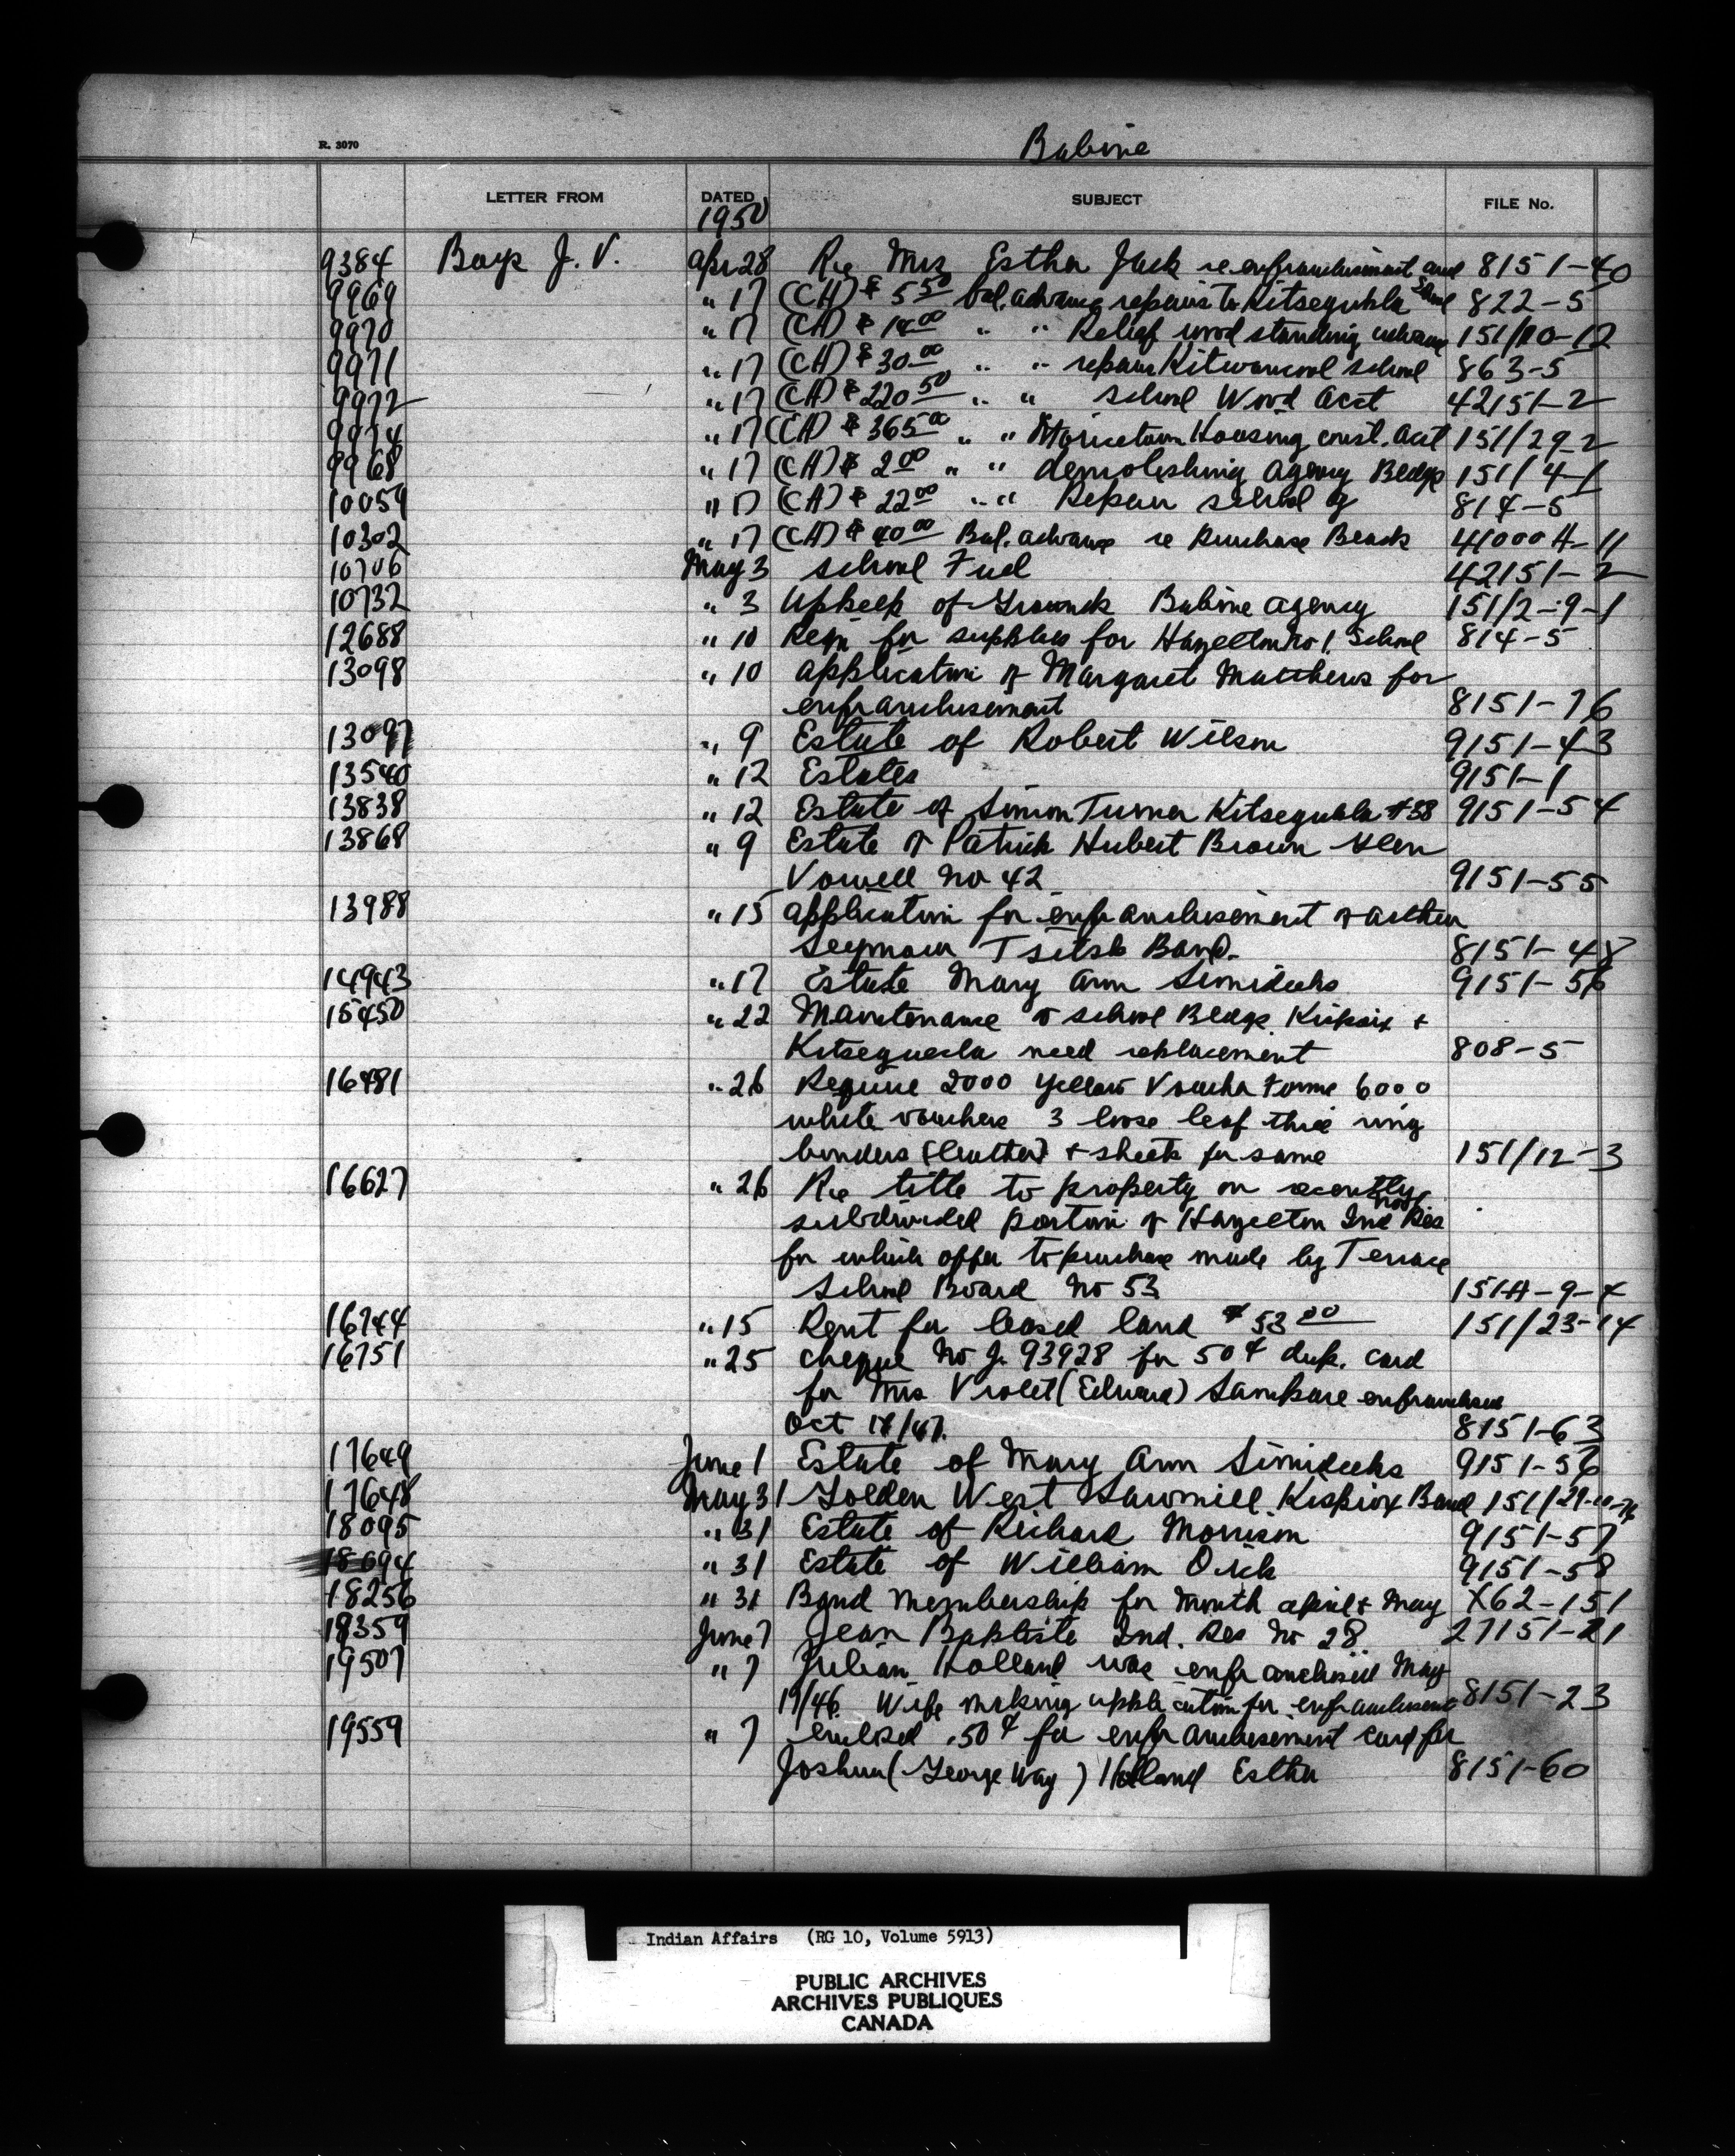 R. 3070
Babine
LETTER FROM DATED SUBJECT FILE No.
1950
9384 Boys J. V. Apr 28 Re Mrs Esther Jack re enfranchisement and 8151-40
9969 " 17 (CA) $ 5.50 bal. advance repairs to Kitseguhla School 822-5
9970 " 17 (CA) $ 14.00 " " Relief wood standing advance 151/10-12
9971 " 17 (CA) $ 30.00 " " repair Kitwancool school 863-5
9972 " 17 (CA) $ 220.50 " " school Wood Acct 42151-2
9974 " 17 (CA) $ 365.00 " " Moricetown Housing const. Acct 151/29-2
9968 " 17 (CA) $ 2.00 " " demolishing Agency Bldgs 151/4-1
10059 " 17 (CA) $ 22.00 " " Repair school 814-5
10302 " 17 (CA) $ 40.00 Bal. advance re Purchase 41000A-11
10706 May 3 School Fuel 42151-2
10732 " 3 Upkeep of Grounds Babine Agency 151/2-9-1
12688 " 10 Reqn for supplies for Hazelton No 1. School 814-5
13098 " 10 Application of Margaret Matthews for
enfranchisement 8151-76
13097 " 9 Estate of Robert Wilson 9151-43
13540 " 12 Estates 9151-1
13838 " 12 Estate of Simon Turner Kitseguhla #38 9151-54
13868 " 9 Estate of Patrick Hubert Brown Glen
Vowell No 42 9151-55
13988 " 15 Application for enfranchisement of Arthur
Seymour Tsitsk Band. 8151-48
14943 " 17 Estate Mary Ann Simideeks 9151-56
15450 " 22 Maintenance of school Bldgs. Kispiox +
Kitseguecla need replacement 808-5
16481 " 26 Require 2000 yellow Voucher Forms 6000
white vouchers 3 loose leaf three ring
binders (leather) + sheets for same 151/12-3
16627 " 26 Re title to property on recently
subdivided portion of Hazelton Ind Res No 1
for which offer to purchase made by Terrace
School Board No 53 151A-9-4
16744 " 15 Rent for leased land $ 53.00 151/23-14
16751 " 25 cheque No J. 93928 for 50¢ dup. card
for Mrs Violet (Edward) Sampare enfranchised
Oct 18/47. 8151-63
17649 June 1 Estate of Mary Ann Simideeks 9151-56
17648 May 31 Golden West Sawmill Kispiox Band 151/29-10-
18095 " 31 Estate of Richard Morrison 9151-57
18094 " 31 Estate of William Dick 9151-58
18256 " 31 Band Membership for Month April + May X62-151
18359 June 7 Jean Baptiste Ind. Res No 28. 27151-21
19507 " 7 Julian Holland was enfranchised May
19/46. Wife making application for enfranchisement 8151-23
19559 " 7 enclosed .50¢ for enfranchisement card for
Joshua (George Way) Holland Esther 8151-60
Indian Affairs (RG 10, Volume 5913)
PUBLIC ARCHIVES
ARCHIVES PUBLIQUES
CANADA